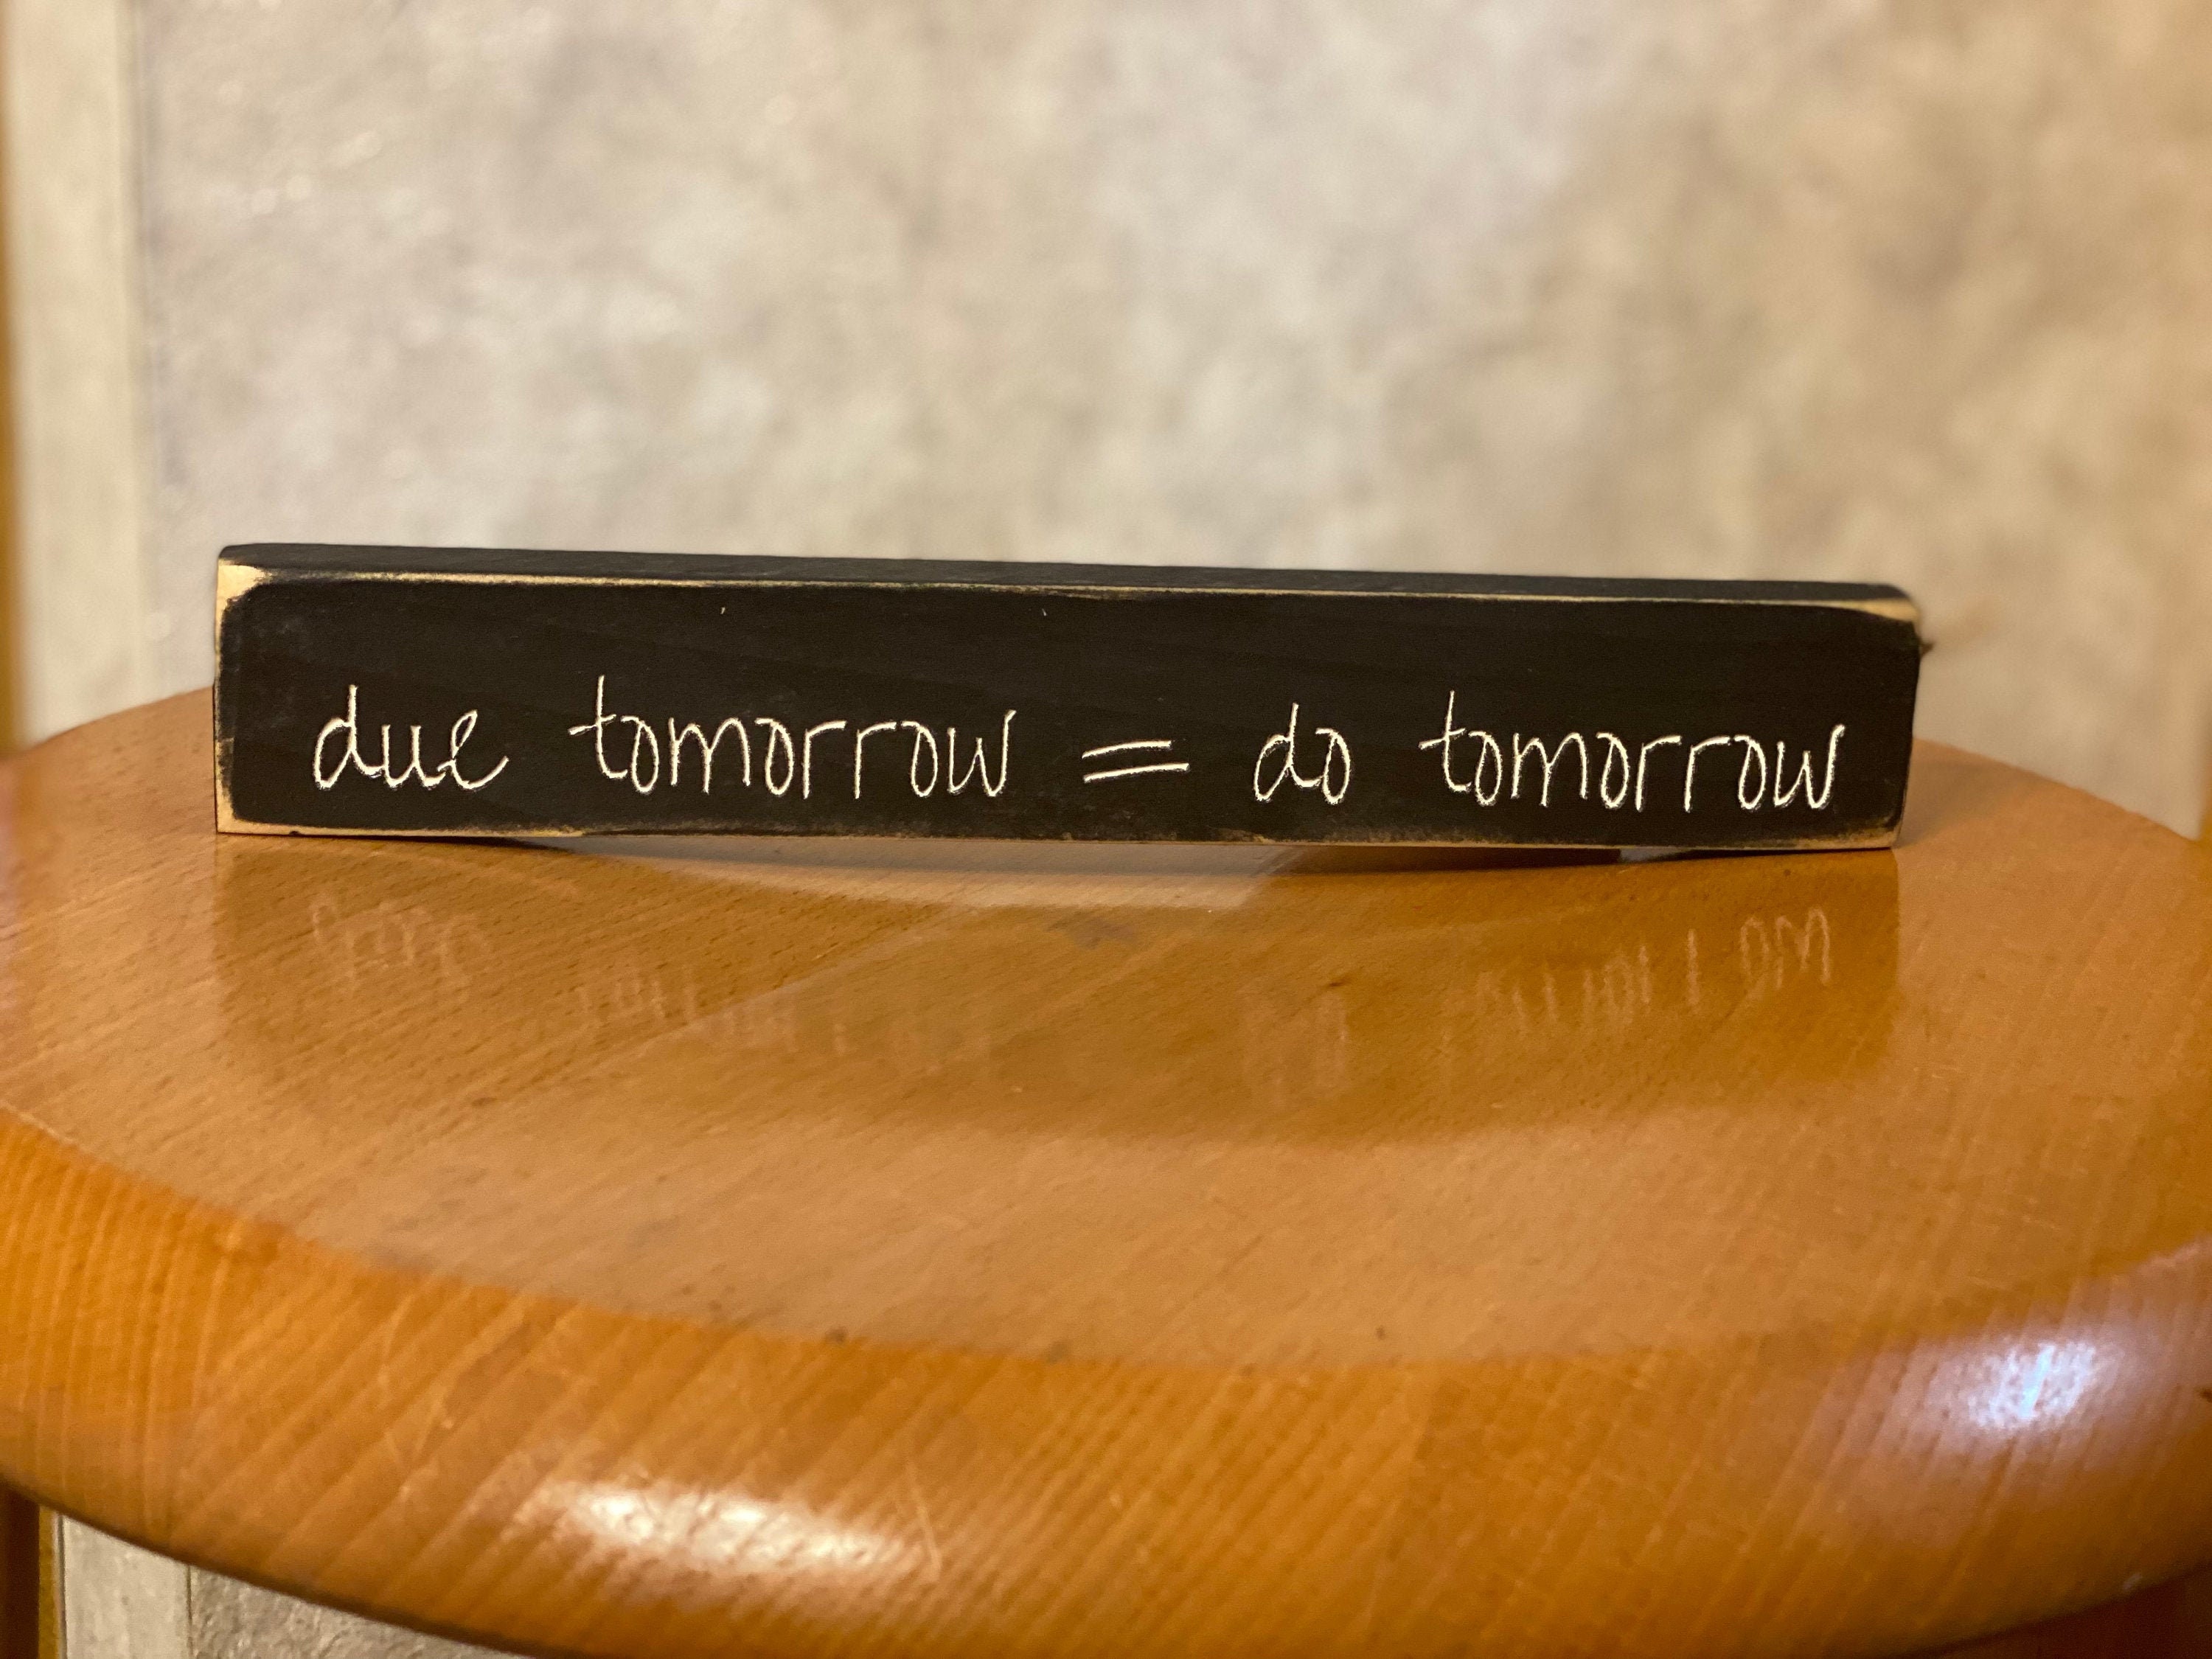 due tomorrow = do tomorrow